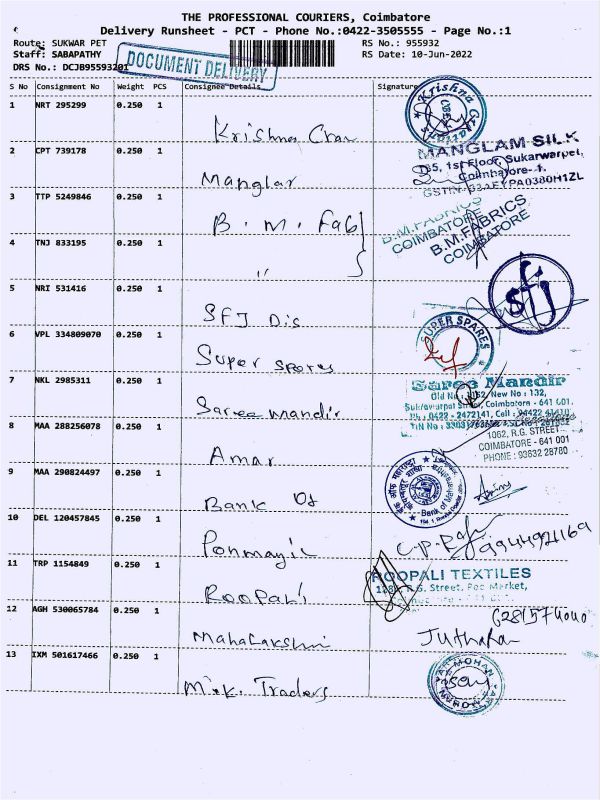 THE PROFESSIONAL COURIERS, Coimbatore
Delivery Runsheet - PCT - Phone No.:0422-3505555 - Page No.:1
Route: SUKWAR PET RS No.: 955932
Staff: SABAPATHY RS Date: 10-Jun-2022
DRS No.: DCJB95593201
DOCUMENT DELIVERY
S No Consignment No Weight PCS Consignee Details Signature
1 NRT 295299 0.250 1
Krishna
2 CPT 739178 0.250 1
MANGLAM SILK
135, 1st Floor, Sukarwarpet,
Coimbatore-1.
Manglar
3 TTP 5249846 0.250 1
B. M. Fab
B.M.FABRICS
COIMBATORE
B.M.FABRICS
COIMBATORE
4 TNJ 833195 0.250 1
"
5 NRI 531416 0.250 1
SFJ Dis
sfj
6 VPL 334809070 0.250 1
Super Spares
SUPER SPARES
7 NKL 2985311 0.250 1
Saree Mandir
Saree Mandir
New No : 132,
Coimbatore - 641 001.
8 MAA 288256078 0.250 1
Amar
1062, R.G. STREET
COIMBATORE - 641 001
PHONE : 93632 28780
9 MAA 290824497 0.250 1
Bank Of
Bank of
10 DEL 120457845 0.250 1
Ponmayil
9944921169
11 TRP 1154849 0.250 1
Roopali
ROOPALI TEXTILES
R.G. Street, Market,
12 AGH 530065784 0.250 1
Mahalakshmi
13 IXM 501617466 0.250 1
M.K. Traders